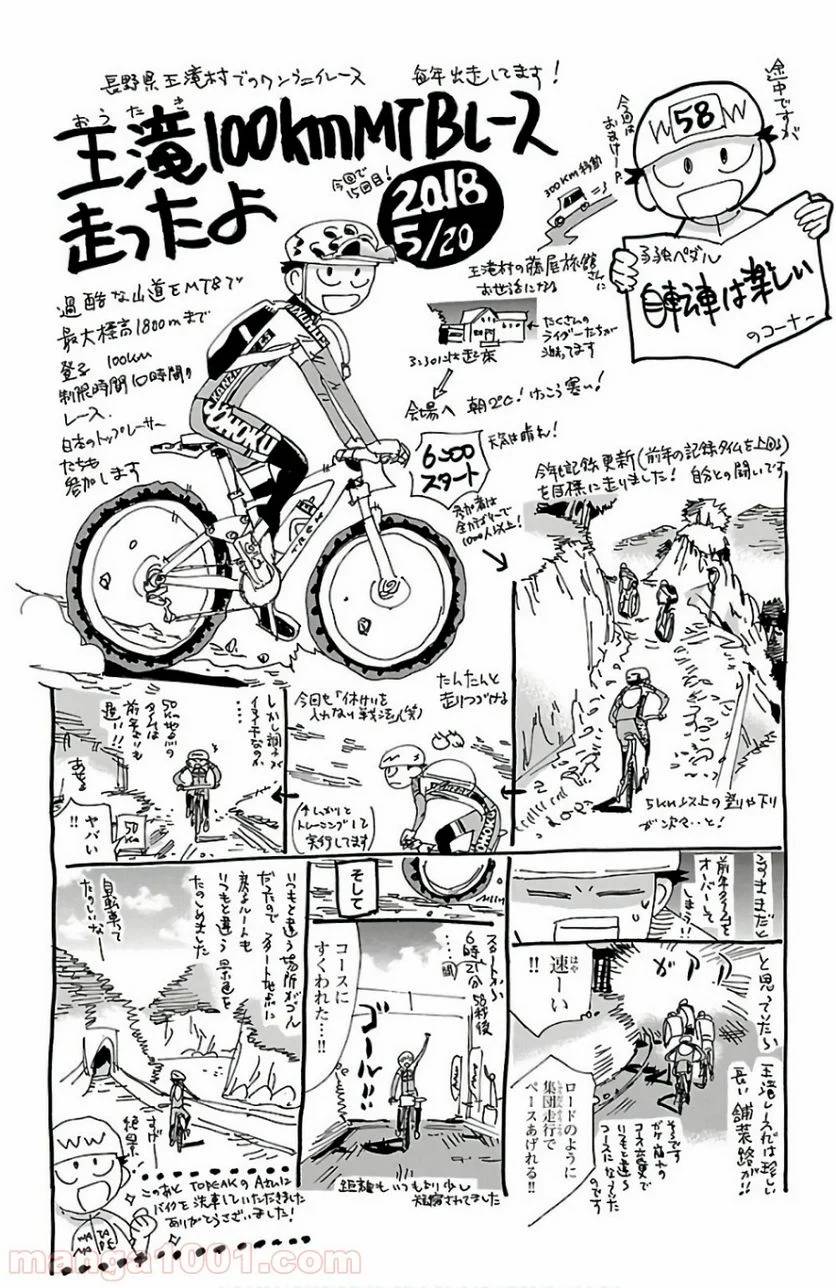 長野県王滝村でのワンデイレース
毎年出走してます!
おうたき
王滝100kmMTBレース
走ったよ
今回で
15回目!
2018
5/20
途中ですが
今回は
おまけー
W58W
弱虫ペダル
自転車は楽しい
のコーナー
300km移動
過酷な山道をMTBで
最大標高1800mまで
登る 100km
制限時間10時間の
レース.
日本のトップレーサー
たちも
参加します
王滝村の藤屋旅館さんに
お世話になる
たくさんの
ライダーたちが
泊ってます
3:30には起床
会場へ 朝2℃!けっこう寒い!
天気は晴れ!
6:00
スタート
参加者は
全カテゴリーで
1000人以上!
今年も記録更新(前年の記録タイムを上回る)
を目標に走りました! 自分との闘いです
JOHOKU
TREK
5km以上の登りや下り
が次々…と!
たんたんと
走りつづける
今回も「休けいを
入れない戦法」(笑)
(しっかりと
トレーニングして
実行してます)
しかし調子が
イマイチなのか
……
50km地点の
タイムは
前年よりも
遅い!!
あせる
ヤバい
!!
50
km
このままだと
前年タイムを
オーバーして
しまう!!
と思っていたら
ガアアア
速ーい
はや
!!
王滝レースでは珍しい
長い舗装路が!!
そうです
ガケ崩れの
コース変更で
いつもと違う
コースになった
のです
ロードのように
集団走行で
ペースあげれる!!
そして
スタートから
6時間21分58秒後
……
コースに
すくわれた…!!
ゴール!!
距離もいつもより少し
短縮されてました
いつもと違う場所がゴール
だったので スタート地点に
戻るルートも
いつもと違う景色を
たのしめました
自転車って
たのしいなー
すげー
絶景
WW
このあと TOPEAKのAさんに
バイクを洗車していただきました
ありがとうございました!
WA
TA
NA
BE
manga1001.com